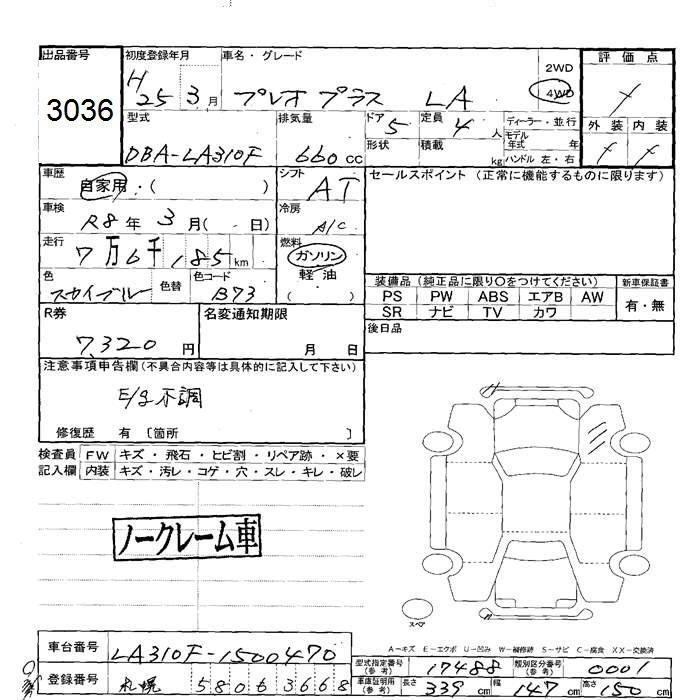 出品番号 初度登録年月 車名・グレード 評価点
3036 H25 3月 プレオプラス LA 2WD 4WD
型式 排気量 ドア 定員 ディーラー・並行 外装 内装
DBA-LA310F 660cc 5 4人 モデル年式 年
形状 積載 kg ハンドル 左・右
車歴 自家用:( ) シフト AT セールスポイント (正常に機能するものに限ります)
車検 R8年 3月( 日) 冷房 A/C
走行 7万6千185km 燃料 ガソリン
軽油
( )
色 スカイブルー 色替 色コード B73
装備品 (純正品に限り○をつけてください) 新車保証書
PS PW ABS エアB AW 有・無
SR ナビ TV カワ
R券 7,320円 名変通知期限 月 日 後日品
注意事項申告欄(不具合内容等は具体的に記入して下さい)
E/g不調
修復歴 有 〔箇所 〕
検査員 FW キズ・飛石・ヒビ割・リペア跡・×要
記入欄 内装 キズ・汚レ・コゲ・穴・スレ・キレ・破レ
ノークレーム車
スペア
A-キズ E-エクボ U-凹み W-補修跡 S-サビ C-腐食 XX-交換済
車台番号 LA310F-1500470 型式指定番号(参考) 17488 類別区分番号(参考) 0001
登録番号 札幌 580 6 3668 車庫証明用(参考) 長さ 339cm 幅 147cm 高さ 150cm